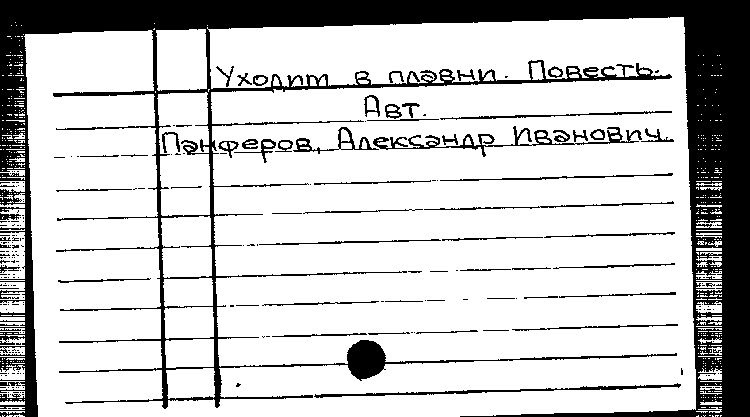 Уходит в плавни. Повесть.
Авт.
Панферов, Александр Иванович.